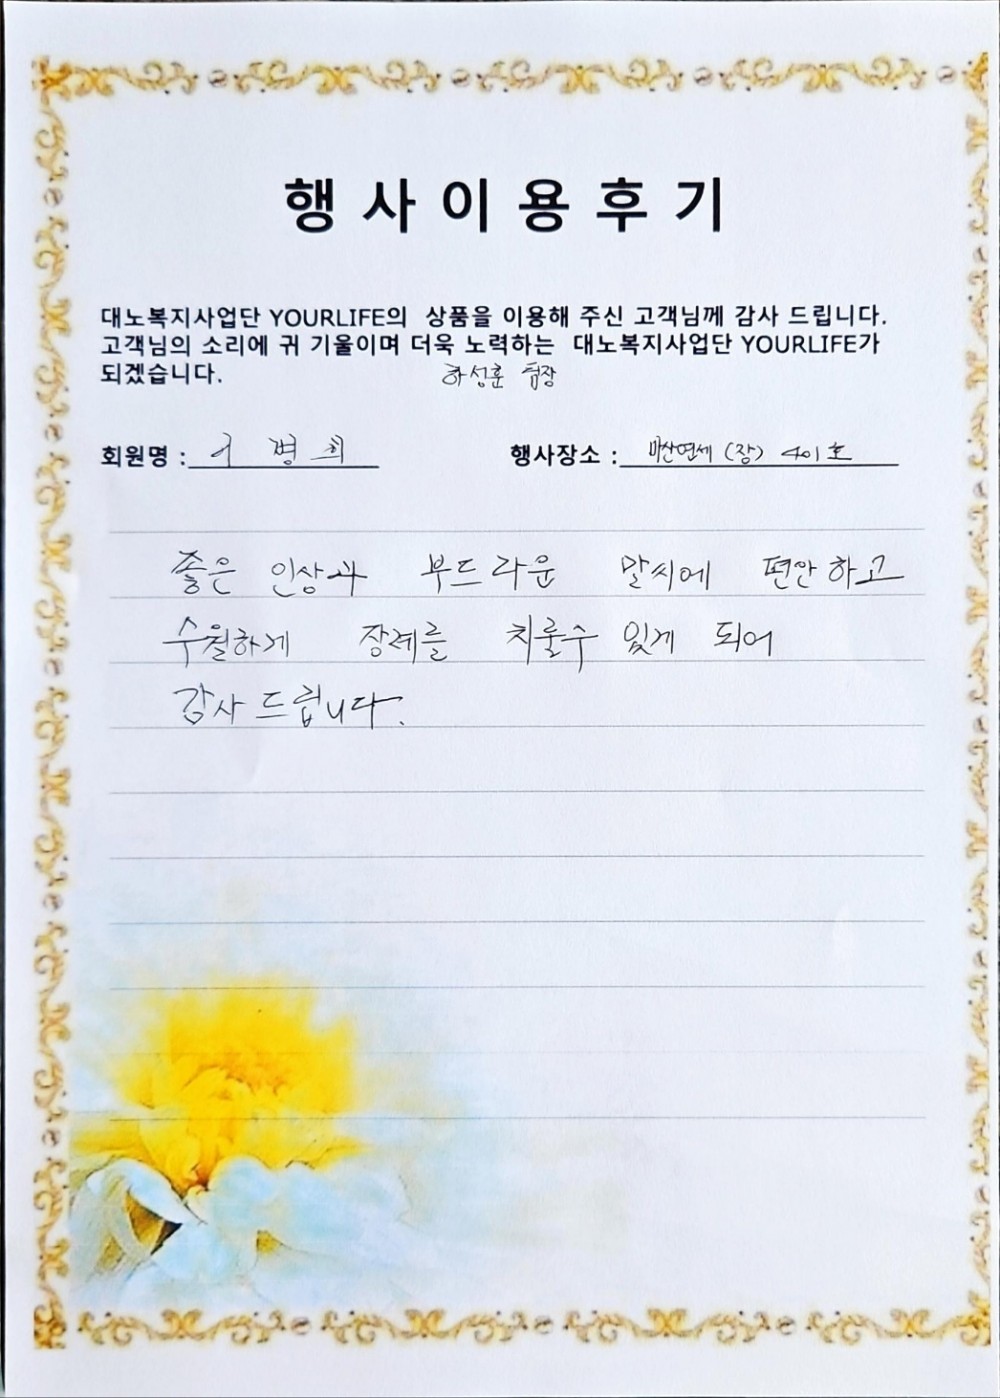 행사이용후기
대노복지사업단 YOURLIFE의 상품을 이용해 주신 고객님께 감사 드립니다.
고객님의 소리에 귀 기울이며 더욱 노력하는 대노복지사업단 YOURLIFE가
되겠습니다. 하성훈 팀장
회원명 : 병희 행사장소 : 마산연세 (장) 401호
좋은 인상과 부드라운 말씨에 편안하고
수월하게 장례를 치룰수 있게 되어
감사드립니다.